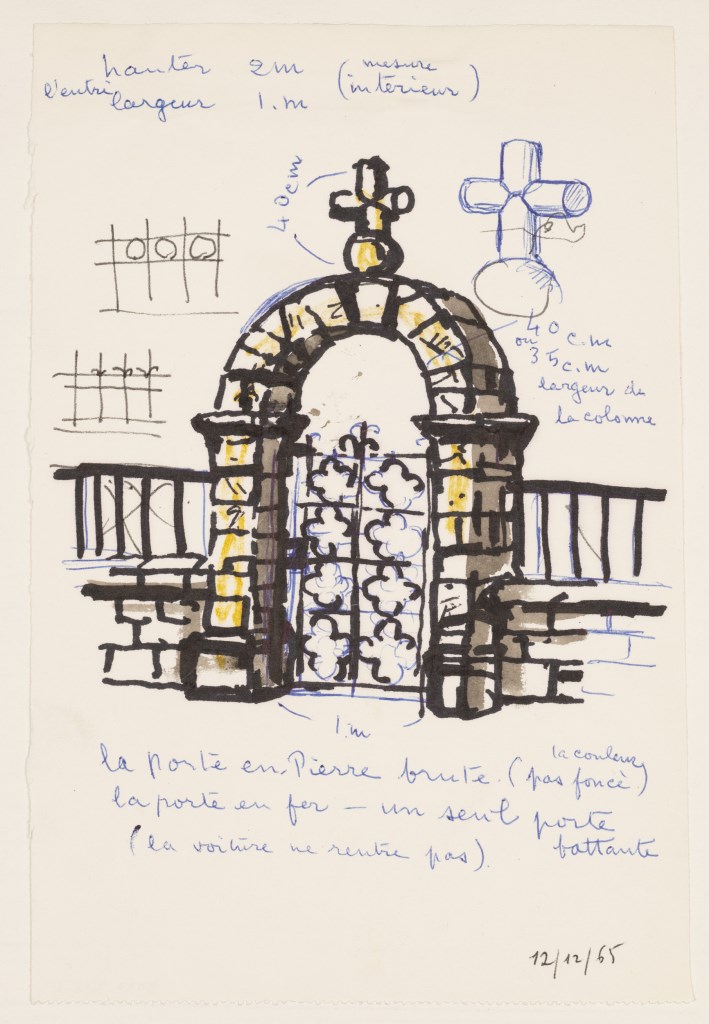 hauter 2m (mesure
l'entri largeur 1.m intèrieur)
40cm
40 c.m
ou
35c.m
largeur de
la colonne
1.m
la porte en Pierre brute. (la couleur
pas foncè.)
la porte en fer – un seul porte
battante
(la voiture ne rentre pas).
12/12/65